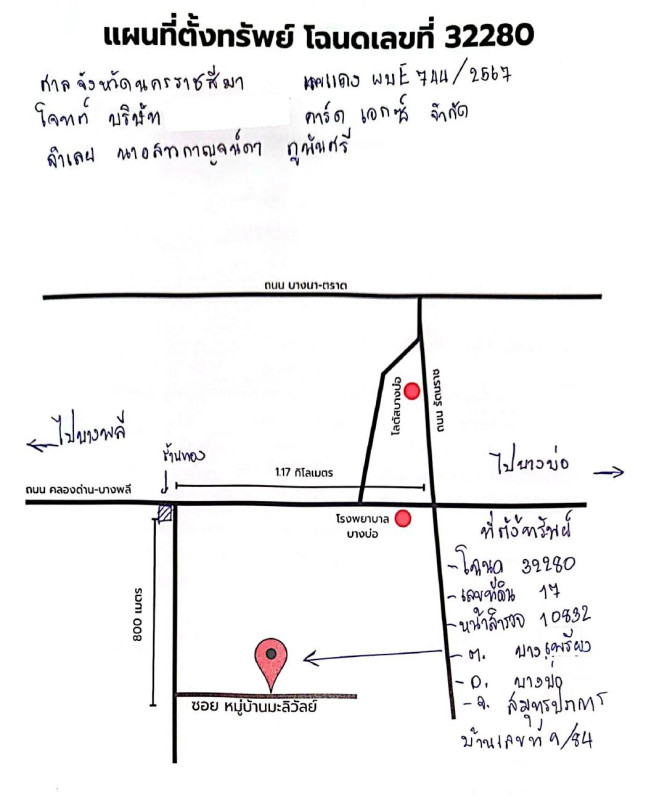 แผนที่ตั้งทรัพย์ โฉนดเลขที่ 32280
ศาลจังหวัดนครราชสีมา เลขแดง ผบE 744/2567
โจทก์ บริษัท คาร์ด เอกซ์ จำกัด
จำเลย
ถนน บางนา-ตราด
โลตัสบางบ่อ
ถนน รัตนราช
ไปบางพลี
ร้านทอง
1.17 กิโลเมตร
ไปบางบ่อ
ถนน คลองด่าน-บางพลี
โรงพยาบาล
บางบ่อ
ที่ตั้งทรัพย์
- โฉนด 32280
- เลขที่ดิน 17
- หน้าสำรวจ 10832
- ต. บางเพรียง
- อ. บางบ่อ
- จ. สมุทรปราการ
บ้านเลขที่ 9/84
800 เมตร
ซอย หมู่บ้านมะลิวัลย์